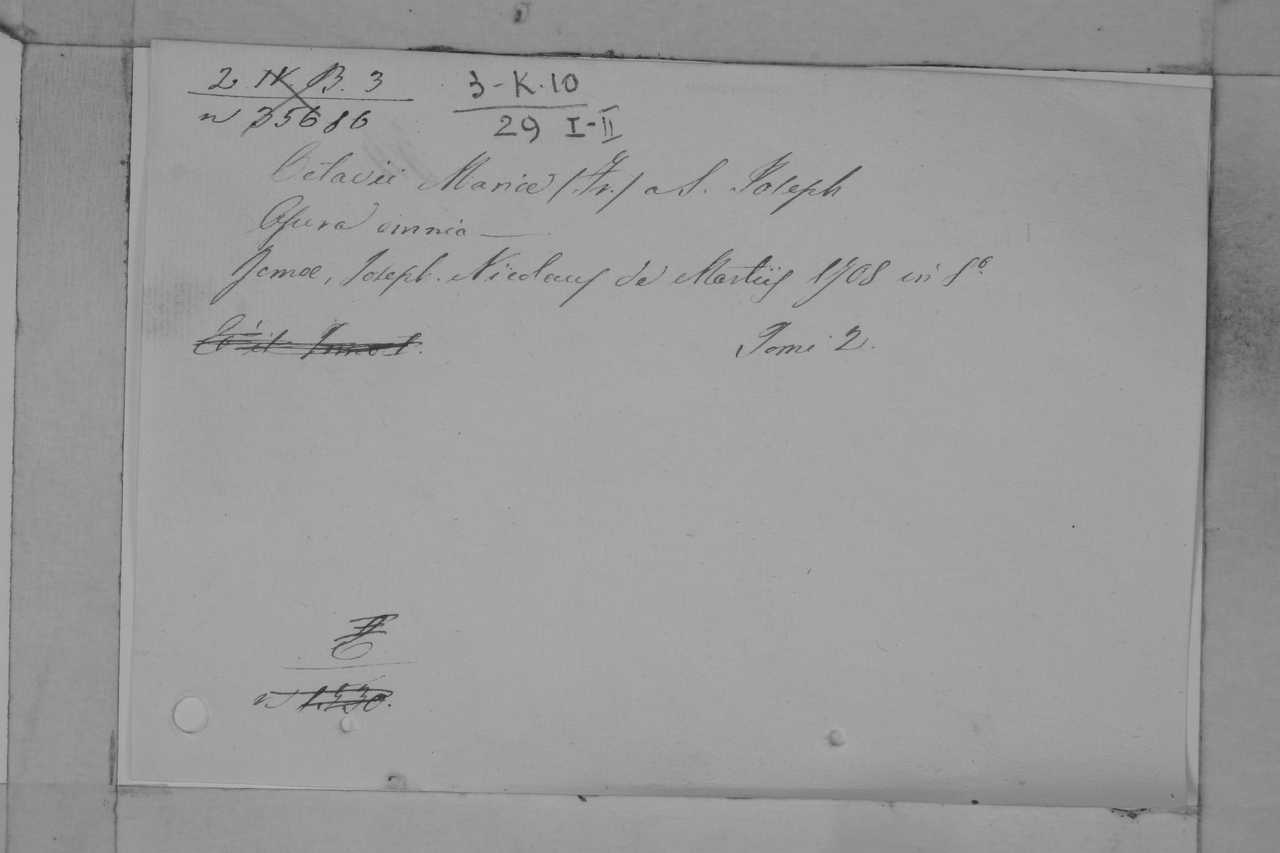 2. IX. B. 3
n 35686
3-K.10
29 I-II
Octavii Mariae (Fr.) a S. Joseph
Opera omnia —
Romae, Joseph. Nicolaus de Martiis 1708 in 8°.
Tomi 2.
E
n 1530.